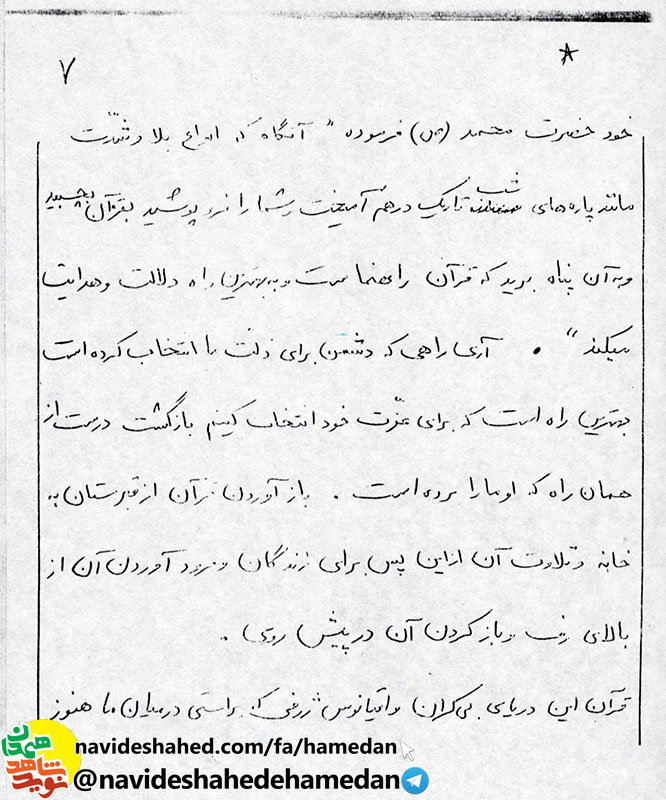 ۷
خود حضرت محمد (ص) فرموده " آنگاه که انواع بلا و شدّت
مانند پاره‌های شب تاریک درهم آمیخت و شما را فرو پوشید بقرآن بچسبید
و به آن پناه برید که قرآن راهنماست و به بهترین راه دلالت و هدایت
میکند " . آری راهی که دشمن برای ذلّت ما انتخاب کرده است
بهترین راه است که برای عزّت خود انتخاب کنیم بازگشت درست از
همان راه که او ما را برده است . باز آوردن قرآن از قبرستان به
خانه و تلاوت آن ازاین پس برای زندگان و فرود آوردن آن از
بالای رف و باز کردن آن در پیش روی) .
قرآن این دریای بی‌کران و اقیانوس ژرفی که براستی در میان ما هنوز
navideshahed.com/fa/hamedan
@navideshahedehamedan
نوید شاهد همدان